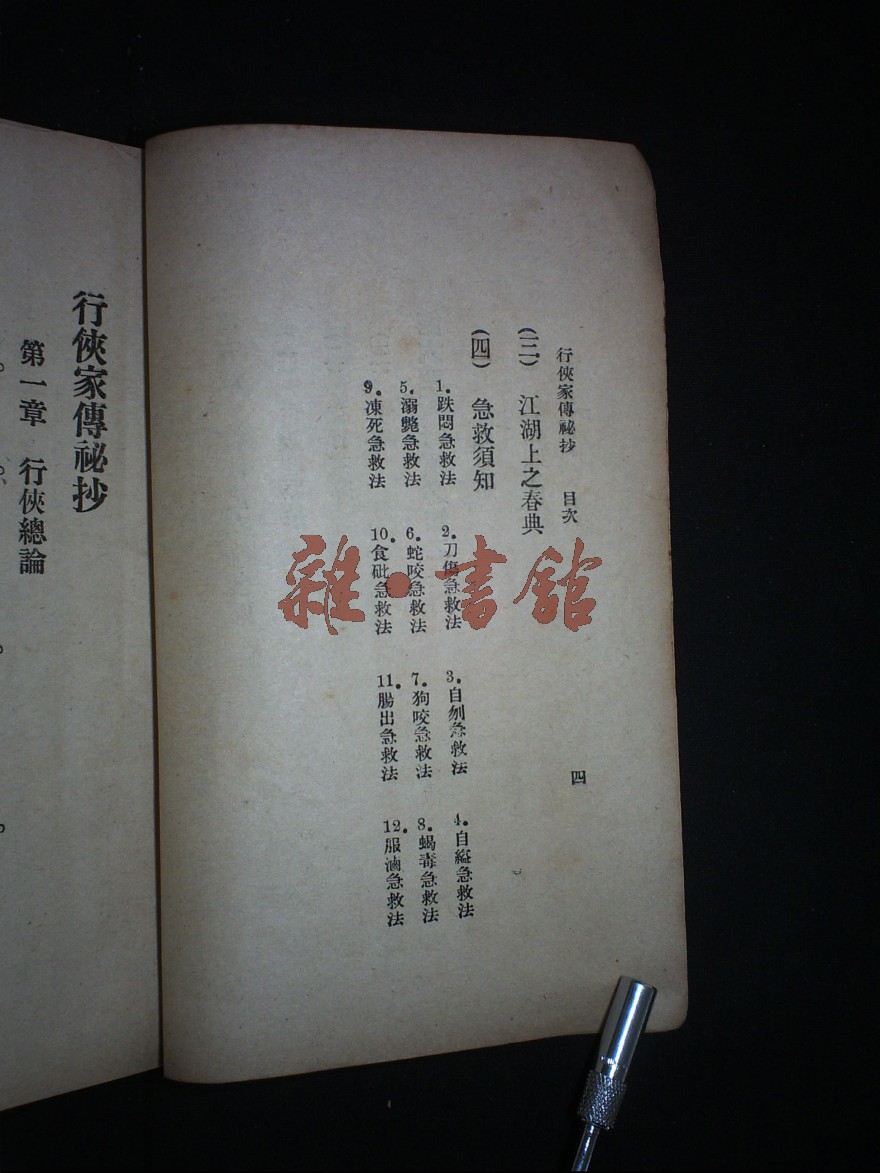 行俠家傳祕抄　目次　四
(三)　江湖上之春典
(四)　急救須知
1.跌悶急救法　2.刀傷急救法　3.自刎急救法　4.自縊急救法
5.溺斃急救法　6.蛇咬急救法　7.狗咬急救法　8.蝎毒急救法
9.凍死急救法　10.食砒急救法　11.腸出急救法　12.服滷急救法
行俠家傳祕抄
第一章　行俠總論
雜·書館